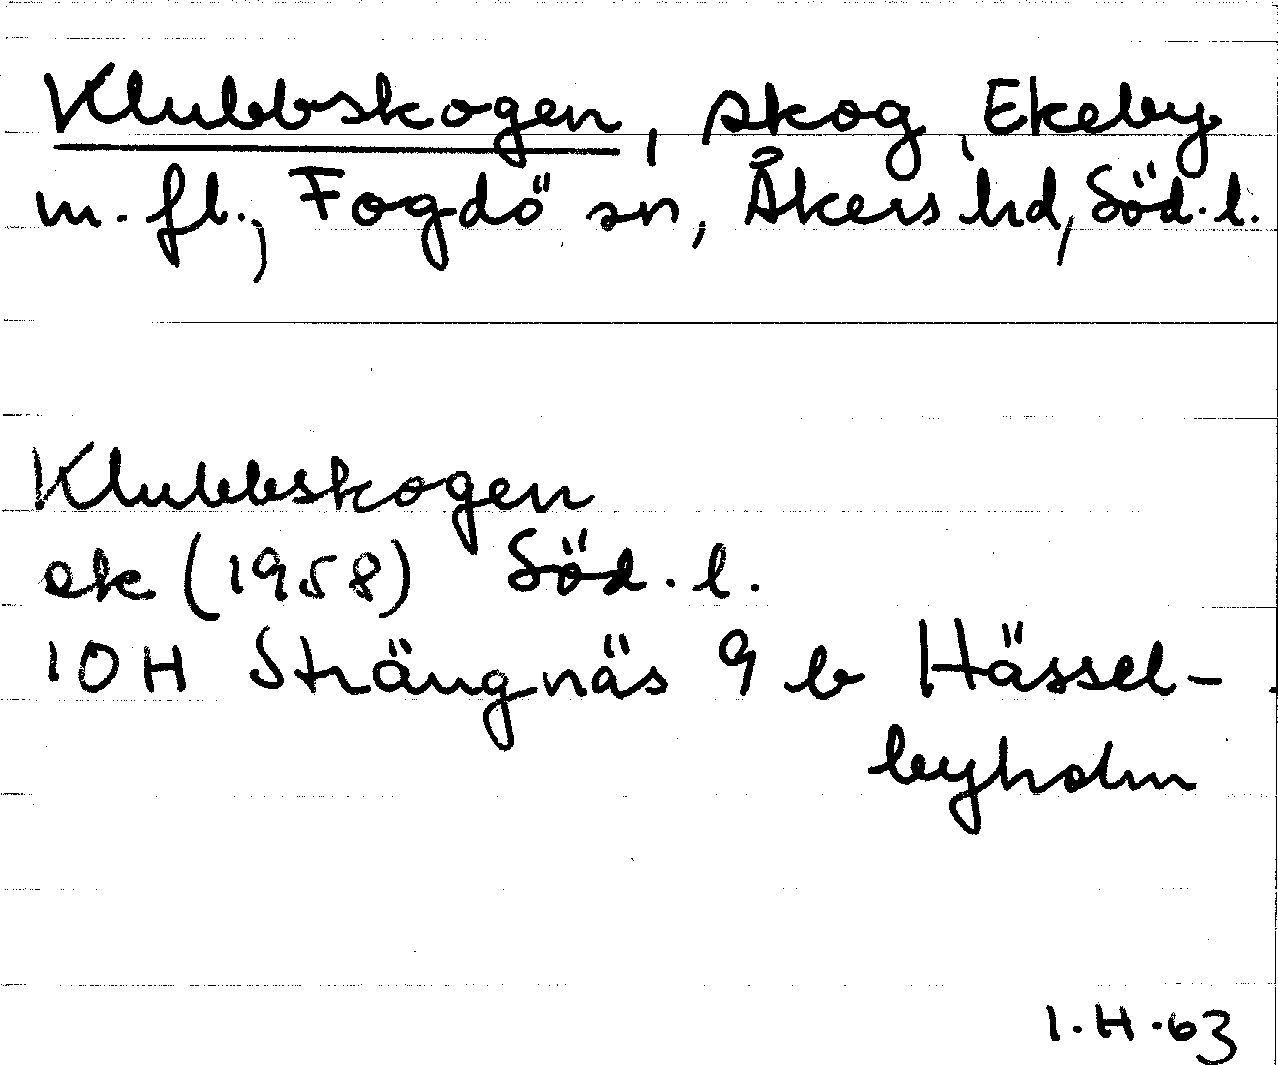 Klubbskogen, skog, Ekeby
m.fl., Fogdö sn, Åkers hd, Söd.l.
Klubbskogen
ek (1958) Söd.l.
10H Strängnäs 9 b Hässel-
byholm
I.H.63